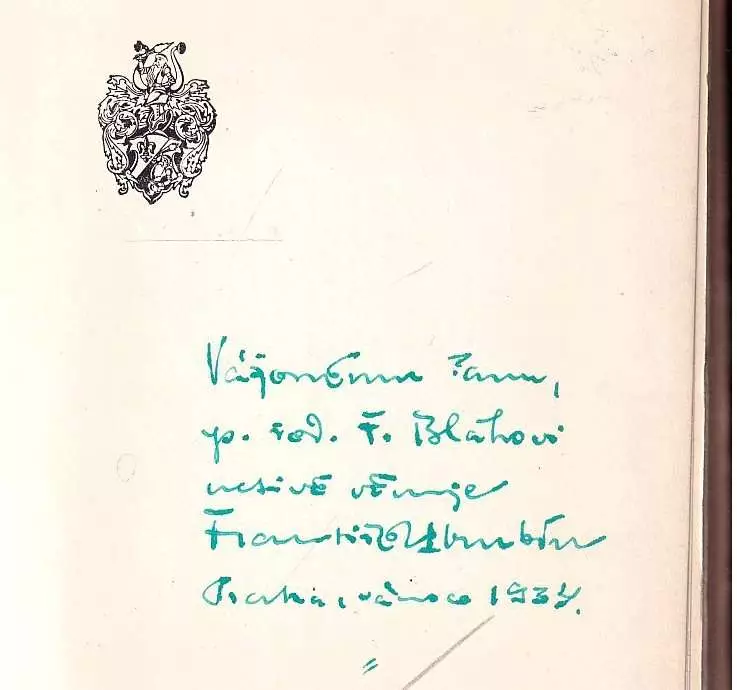 Váženému Panu,
p. red. F. Bláhovi
uctivě věnuje
František
Praha, vánoce 1934.